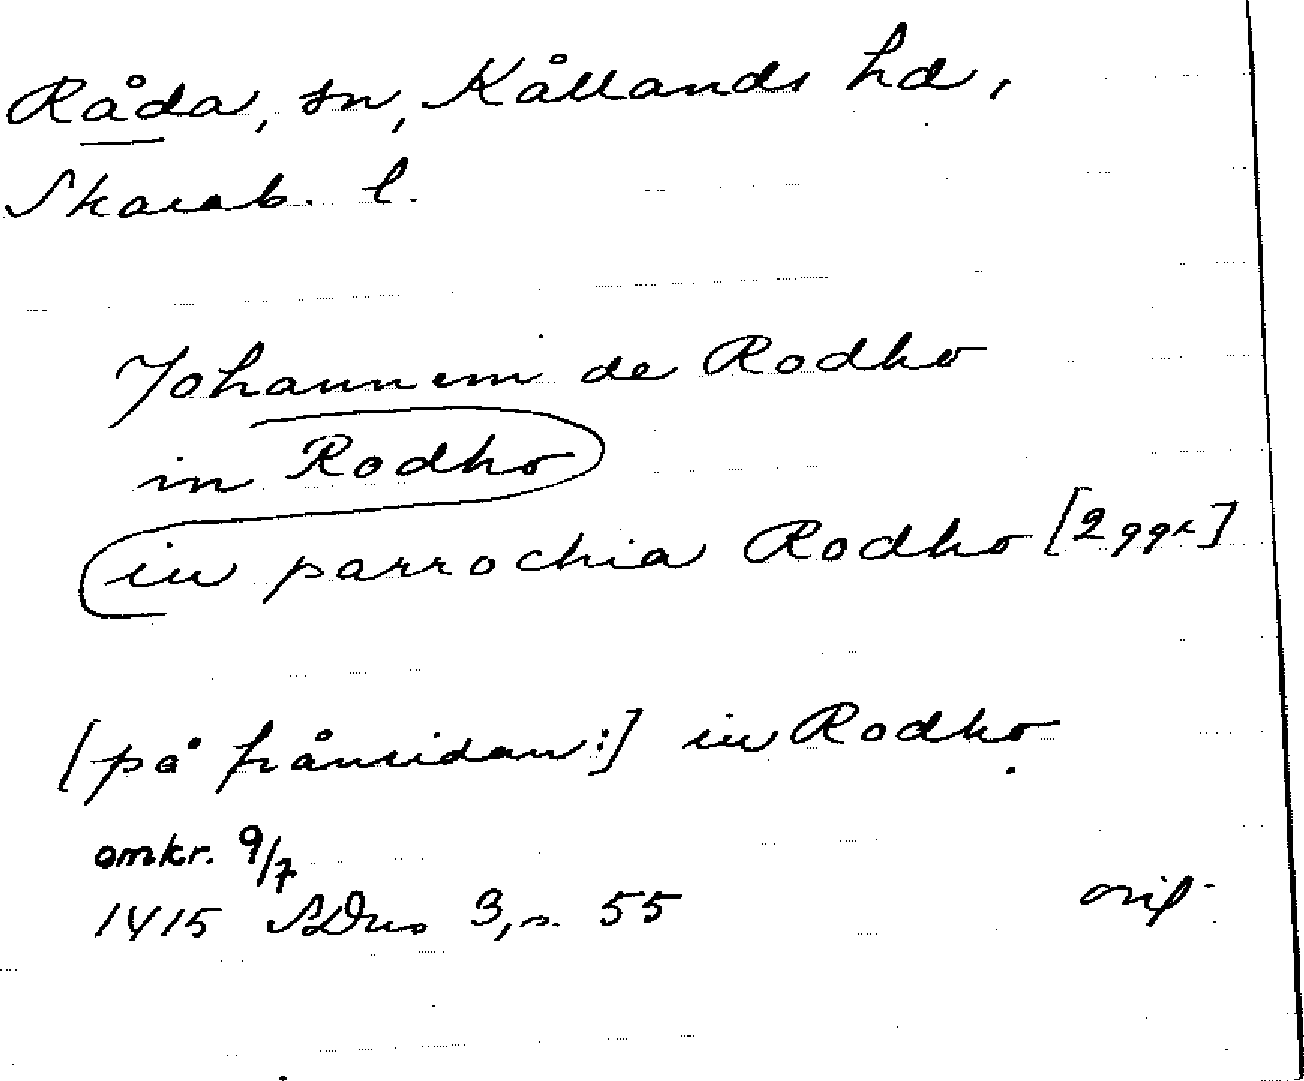 Råda, sn, Kållands hd,
Skarab. l.
Johannem de Rodho
in Rodho
in parrochia Rodho [2 ggr]
[på frånsidan:] in Rodho
omkr. 9/7
1415 SDns 3, s. 55 orig.